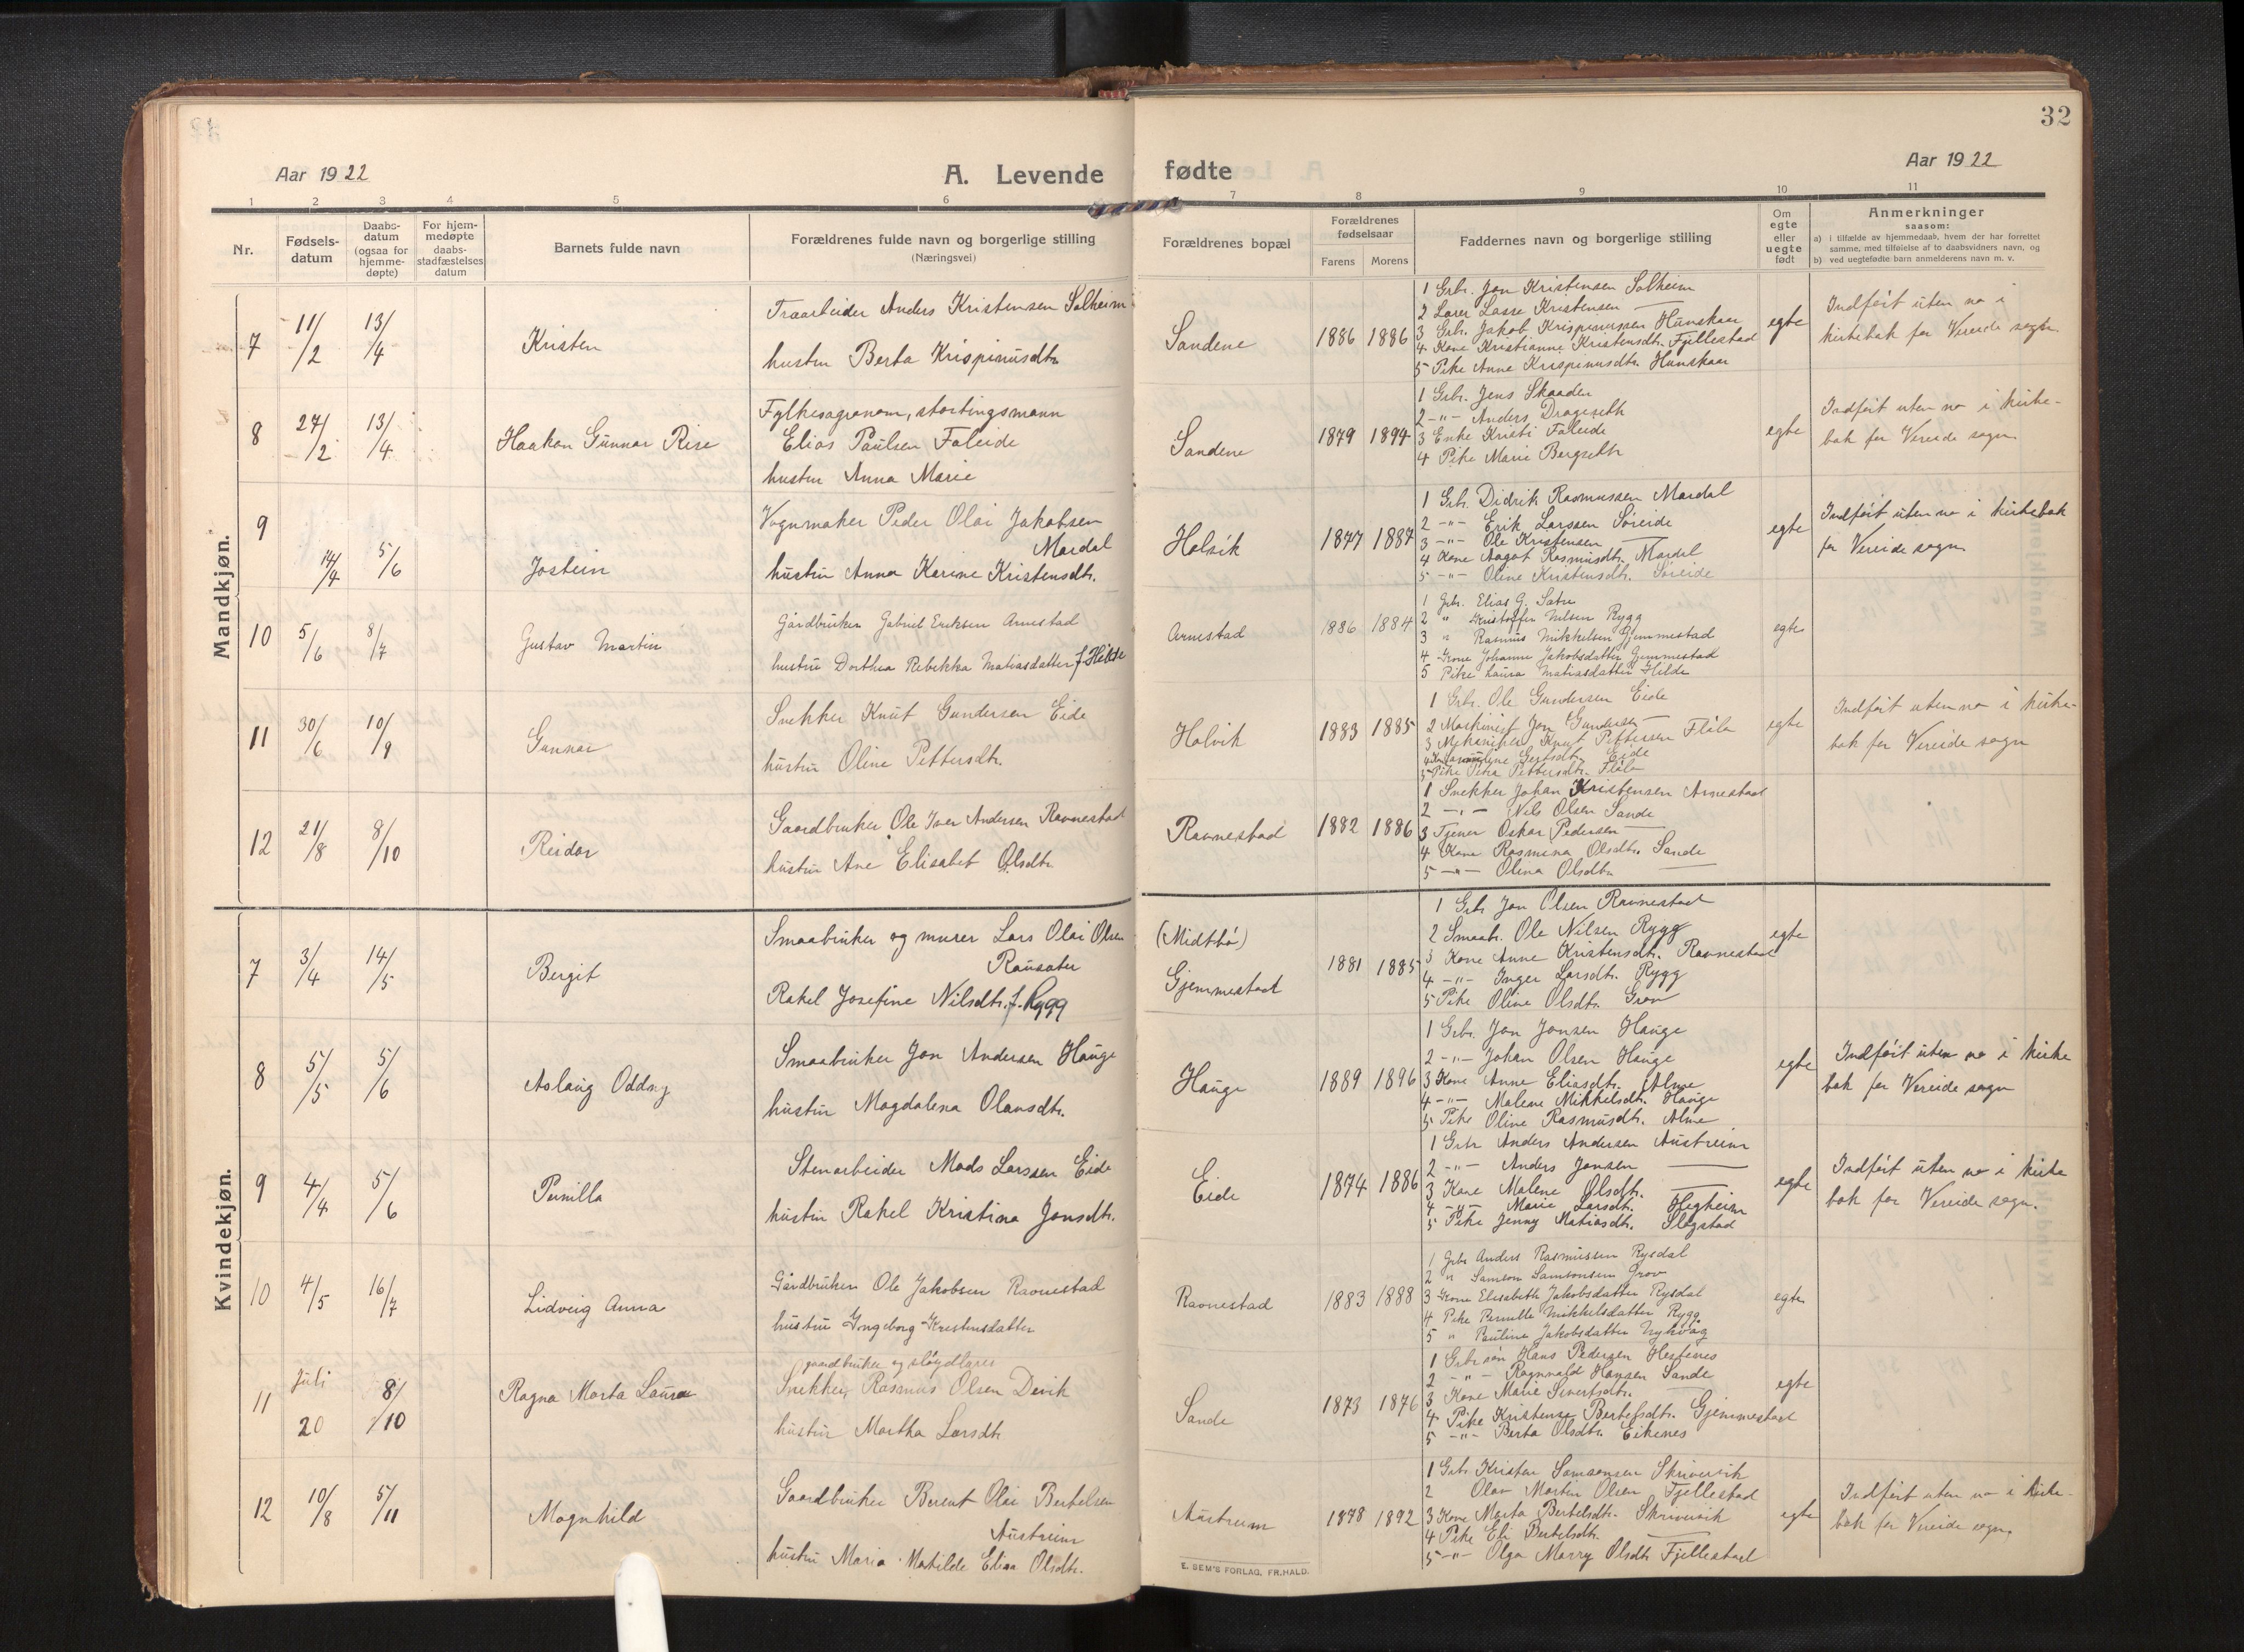 32
Aar 1922
A. Levende
fødte
Aar 1922
1 2 3 4 5 6 7 8 9 10 11
Nr.
Fødsels-
datum
Daabs-
datum
(ogsaa for
hjemme-
døpte)
For hjem-
medøpte
daabs-
stadfæstelses
datum
Barnets fulde navn
Forældrenes fulde navn og borgerlige stilling
(Næringsvei)
Forældrenes bopæl
Forældrenes
fødselsaar
Farens Morens
Faddernes navn og borgerlige stilling
Om
egte
eller
uegte
født
Anmerkninger
saasom:
a) i tilfælde av hjemmedaab, hvem der har forrettet
samme, med tilføielse af to daabsvidners navn, og
b) ved uegtefødte barn anmelderens navn m. v.
Mandkjøn.
7 11/2 13/4 Kristen
Træarbeider Anders Kristensen Solheim
hustru Berta Krispinusdtr.
Sandene 1886 1886
1 Grb. Jon Kristensen Solheim
2 Lærer Lasse Kristensen —
3 Grb. Jakob Krispinussen Hunskaar
4 Kone Kristianne Kristensdtr. Fjellestad
5 Pike Anne Krispinusdtr. Hunskaar
egte
Indført uten no i
kirkebok for Vereide sogn
8 27/2 13/4 Haakon Gunnar Rise
Fylkesagronom, stortingsmann
Elias Paulsen Faleide
hustru Anna Marie
Sandene 1879 1894
1 Grb. Jens Skaaden
2 -"- Anders Drageseth
3 Enke Kristi Faleide
4 Pike Marie Bergseth
egte
Indført uten no i kirke-
bok for Vereide sogn
9 14/4 5/6 Jostein
Vognmaker Peder Olai Jakobsen
Mardal
hustru Anna Karine Kristensdtr.
Holvik 1877 1887
1 Grb. Didrik Rasmussen Mardal
2 -"- Erik Larssen Søreide
3 -"- Ole Kristensen —
4 Kone Aagot Rasmusdtr. Mardal
5 -"- Oline Kristensdtr. Søreide
egte
Indført uten no i kirkebok
for Vereide sogn
10 5/6 8/7 Gustav Martin
Gårdbruker Gabriel Eriksen Arnestad
hustru Dorthea Rebekka Matiasdatter f. Hilde
Arnestad 1886 1884
1 Grb. Elias G. Sætre
2 " Kristoffer Nilsen Rygg
3 " Rasmus Mikkelsen Gjemmestad
4 Kone Johanne Jakobsdatter Gjemmestad
5 Pike Laura Matiasdatter Hilde
egte
11 30/6 10/9 Gunnar
Snekker Knut Gundersen Eide
hustru Oline Pettersdtr.
Holvik 1883 1885
1 Grb. Ole Gundersen Eide
2 Maskinist Jon Gundersen —
3 Mekaniker Knut Pettersen Flåla
Eide
5 Pike Petra Pettersdtr. Flåla
egte
Indført uten no i kirke-
bok for Vereide sogn
12 21/8 8/10 Reidar
Gaardbruker Ole Iver Andersen Ravnestad
hustru Ane Elisabet Olsdtr.
Ravnestad 1882 1886
1 Snekker Johan Kristensen Arnestad
2 -"- Nils Olsen Sande
3 Tjener Oskar Pedersen —
4 Kone Rasmina Olsdtr. Sande
5 -"- Olina Olsdtr. —
Kvindekjøn.
7 3/4 14/5 Bergit
Smaabruker og murer Lars Olai Olsen
Rausæter
Rakel Josefine Nilsdtr. f. Rygg
(Midtbø)
Gjemmestad 1881 1885
1 Grb Jon Olsen Ravnestad
2 Smaabr. Ole Nilsen Rygg
3 Kone Anne Kristensdtr. Ravnestad
4 -"- Inger Larsdtr. Rygg
5 Pike Oline Olsdtr. Grov
egte
8 5/5 5/6 Aslaug Oddny
Smaabruker Jon Andersen Hauge
hustru Magdalena Olavsdtr.
Hauge 1889 1896
1 Grb. Jon Jonsen Hauge
2 -"- Johan Olsen Hauge
3 Kone Anne Eliasdtr. Alme
4 -"- Malene Mikkelsdtr. Hauge
5 Pike Oline Rasmusdtr. Alme
egte
Indført uten no i kirke
bok for Vereide sogn
9 4/4 5/6 Pernilla
Stenarbeider Mads Larssen Eide
hustru Rakel Kristina Jonsdtr.
Eide 1874 1886
1 Grb Anders Andersen Austreim
2 -"- Anders Jonsen —
3 Kone Malene Olsdtr. —
4 -"- Marie Larsdtr. Hegheim
5 Pike Jenny Matiasdtr. Slogstad
egte
Indført uten no i kirke
bok for Vereide sogn.
10 4/5 16/7 Lidveig Anna
Gårdbruker Ole Jakobsen Ravnestad
hustru Ingeborg Kristensdatter
Ravnestad 1883 1888
1 Grb Anders Rasmussen Rysdal
2 " Samson Samsonsen Grov
3 Kone Elisabeth Jakobsdatter Rysdal
4 Pike Pernille Mikkelsdatter Rygg
5 " Pauline Jakobsdatter Nykvåg
egte
11 Juli 20 8/10 Ragna Marta Laura
gaardbruker og sløydlærer
Snekker Rasmus Olsen Devik
hustru Martha Larsdtr
Sande 1873 1876
1 Grbrsøn Hans Pedersen Hestenes
2 -"- Ragnvald Hansen Sande
3 Kone Marie Sivertsdtr. —
4 Pike Kristense Bertelsdtr. Gjemmestad
5 -"- Berta Olsdtr. Eikenes
egte
12 10/8 5/11 Magnhild
Gaardbruker Berent Olai Bertelsen
Austreim
hustru Maria Matilde Elisa Olsdtr.
Austreim 1878 1892
1 Grb. Kristen Samsonsen Skrivervik
2 Olav Martin Olsen Fjellestad
3 Kone Marta Bertelsdtr. Skrivervik
4 Pike Eli Bertelsdtr. —
5 -"- Olga Marry Olsdtr Fjellestad
egte
Indført uten no i kirke-
bok for Vereide sogn.
E. SEM'S FORLAG, FR.HALD.